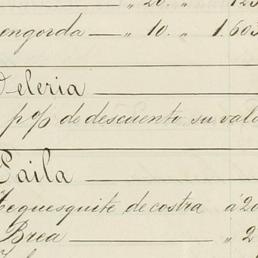 " 20. " 125
engorda — " 10. " 1.605
Peleria
p% de descuento, su valo
Paila
Tequesquite de costra á 20
Brea — " 2